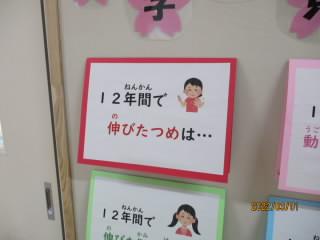 学
ねんかん
12年間で
の
伸びたつめは…
ねんかん
12年間で
の かみ
伸びた
1
うご
動
2022/03/11